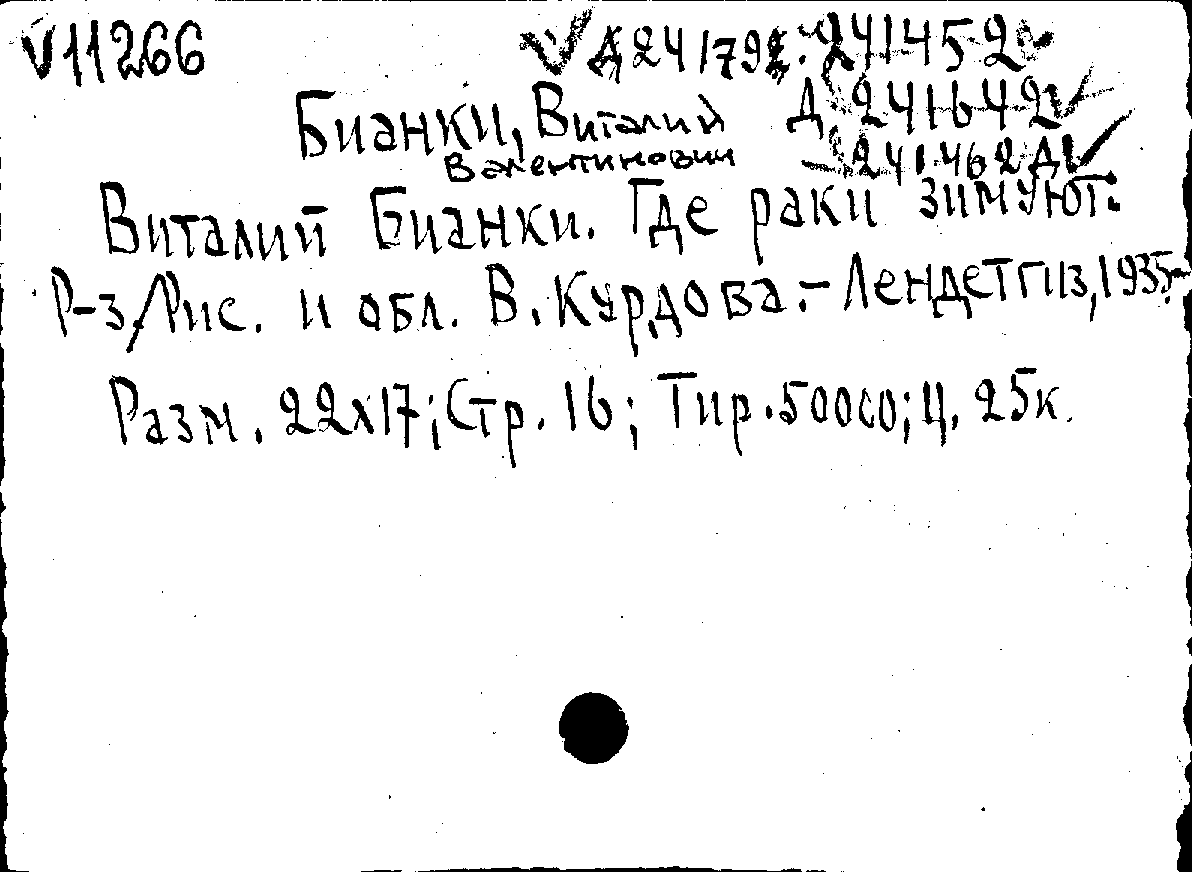 V11266 Д241792. 241452
Бианки, Виталий Д 241642
Валентинович 241462Д
Виталий Бианки. Где раки зимуют.
Р-з/Рис. и обл. В. Курдова.-Лендетгиз, 1935-
Разм. 22х17; Стр. 16; Тир. 50000; Ц. 25к.